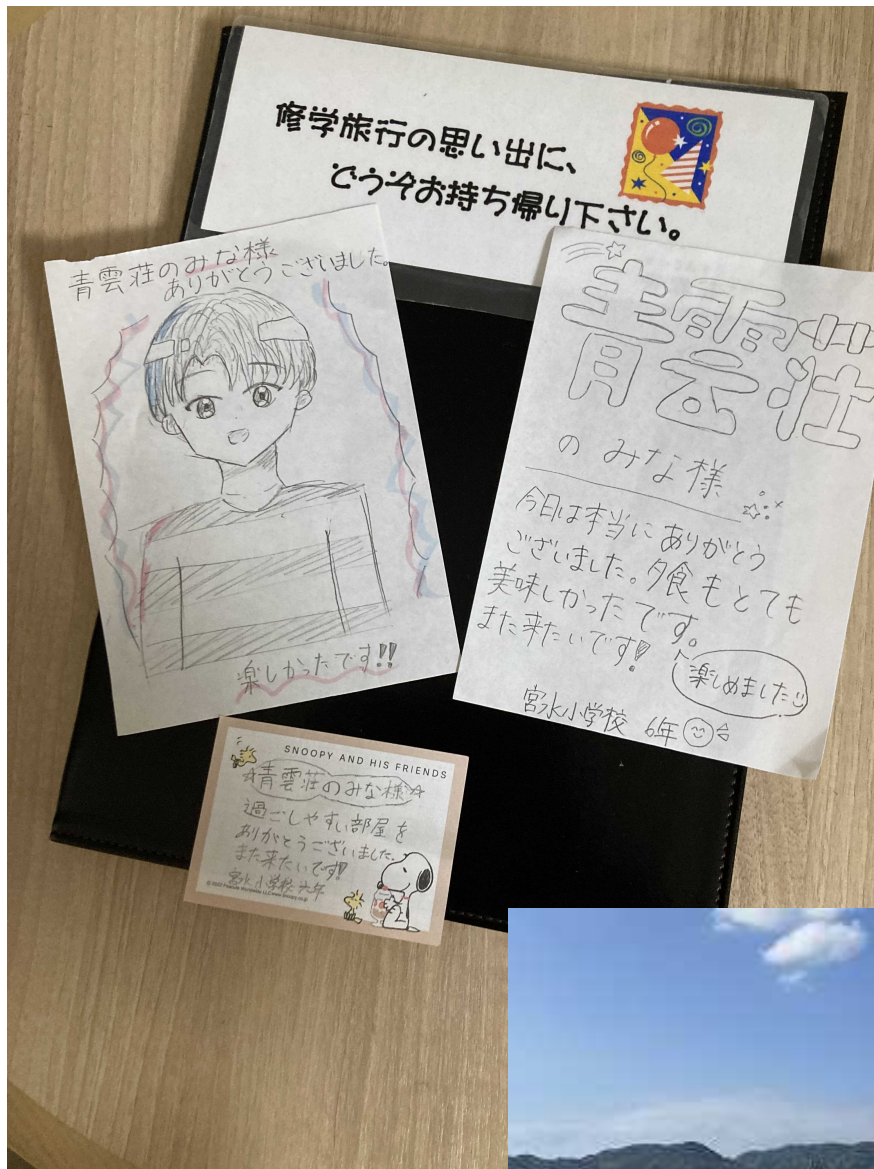 修学旅行の思い出に、
どうぞお持ち帰り下さい。
青雲荘のみな様
ありがとうございました。
楽しかったです!!
青雲荘
のみな様
今日は本当にありがとう
ございました。夕食もとても
美味しかったです。
また来たいです!
楽しめました
宮水小学校 6年
SNOOPY AND HIS FRIENDS
☆青雲荘のみな様☆
過ごしやすい部屋を
ありがとうございました。
また来たいです!!
宮水小学校 六年
© 2020 Peanuts Worldwide LLC www.snoopy.co.jp